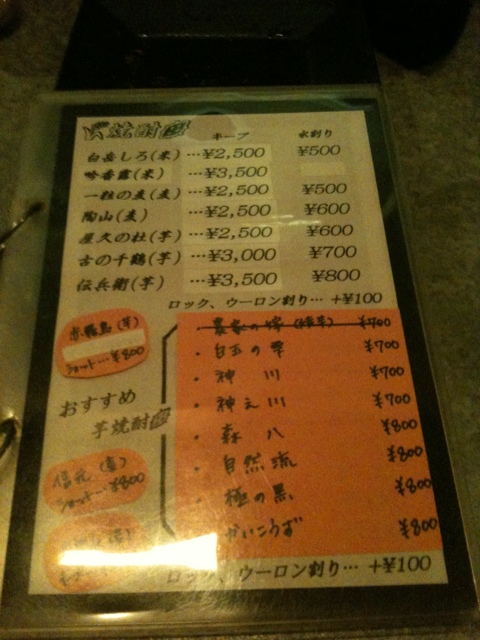 焼酎
キープ 水割り
白岳しろ(米) …¥2,500 ¥500
吟香露(米) …¥3,500
一粒の麦(麦) …¥2,500 ¥500
陶山(麦) …¥2,500 ¥600
屋久の杜(芋) …¥2,500 ¥600
古の千鶴(芋) …¥3,000 ¥700
伝兵衛(芋) …¥3,500 ¥800
ロック、ウーロン割り… +¥100
赤霧島(芋)
ショット…¥800
おすすめ
芋焼酎
農家の嫁 ¥700
・白玉の雫 ¥700
・神川 ¥700
・神之川 ¥700
・森八 ¥800
・自然流 ¥800
・極の黒 ¥800
かいこうず ¥800
ショット…¥800
ロック、ウーロン割り… +¥100